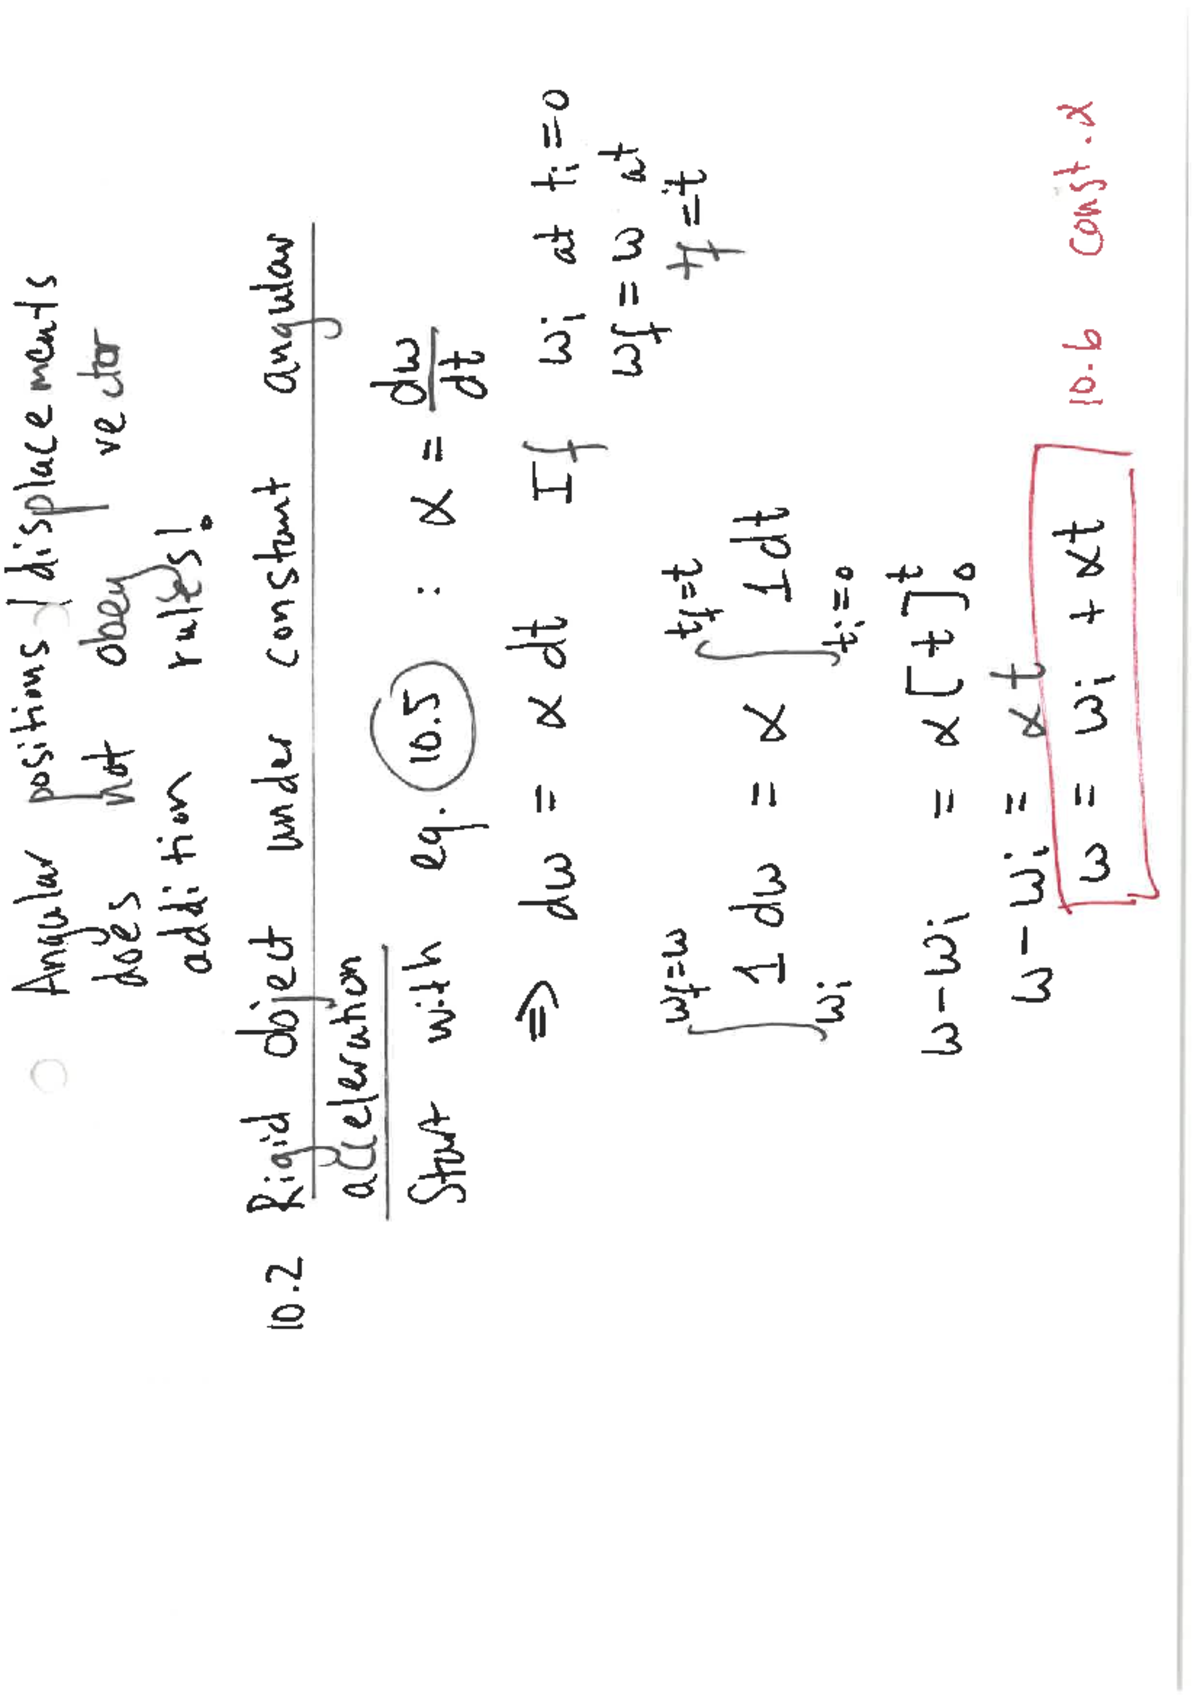 Angular positions / displacements
does not obey vector
addition rules!
10.2 Rigid object under constant angular
acceleration
Start with eq. 10.5 : α = dω/dt
⇒ dω = α dt If ωi at ti = 0
ωf = ω at
tf = t
∫_{ωi}^{ωf=ω} 1 dω = α ∫_{ti=0}^{tf=t} 1 dt
ω - ωi = α [t]_0^t
ω - ωi = αt
ω = ωi + αt 10.6 const. α